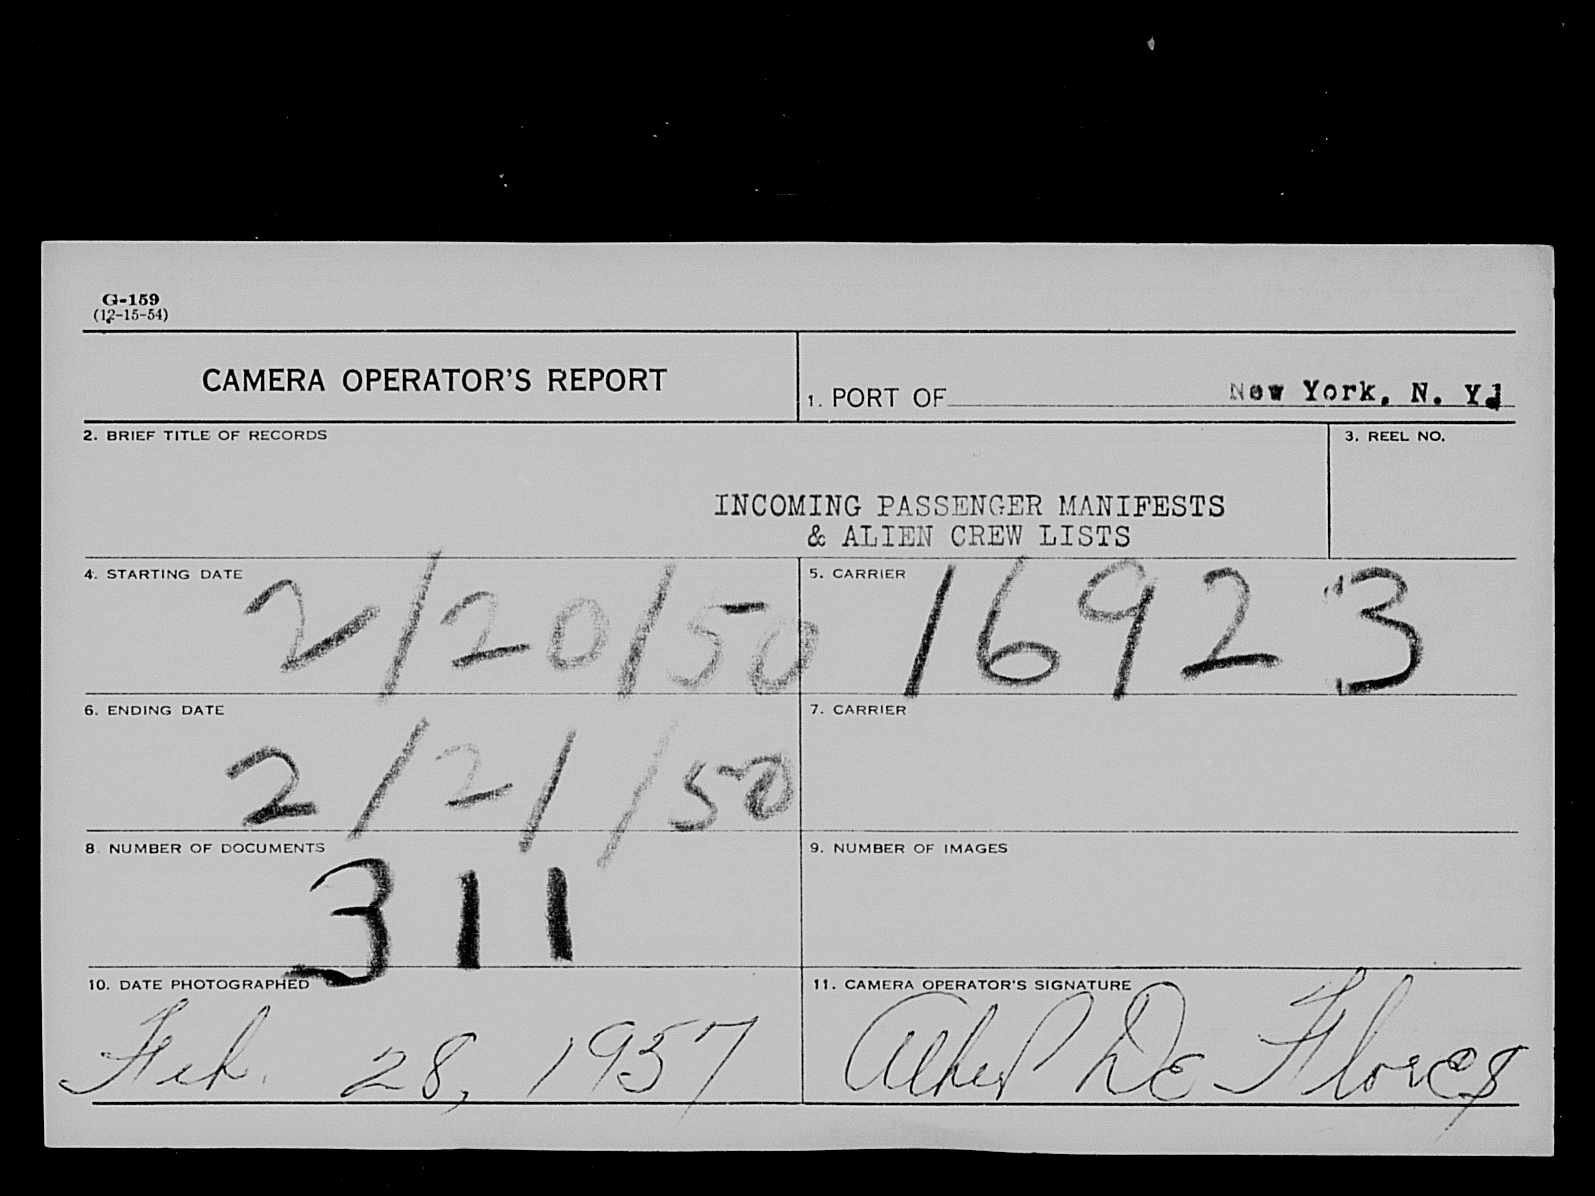 G-159
(12-15-54)
CAMERA OPERATOR'S REPORT
1. PORT OF New York, N. Y.
2. BRIEF TITLE OF RECORDS
3. REEL NO.
INCOMING PASSENGER MANIFESTS
& ALIEN CREW LISTS
4. STARTING DATE 2/20/50
5. CARRIER 16923
6. ENDING DATE
2/21/50
7. CARRIER
8. NUMBER OF DOCUMENTS
311
9. NUMBER OF IMAGES
10. DATE PHOTOGRAPHED
Feb. 28, 1957
11. CAMERA OPERATOR'S SIGNATURE
De Flores